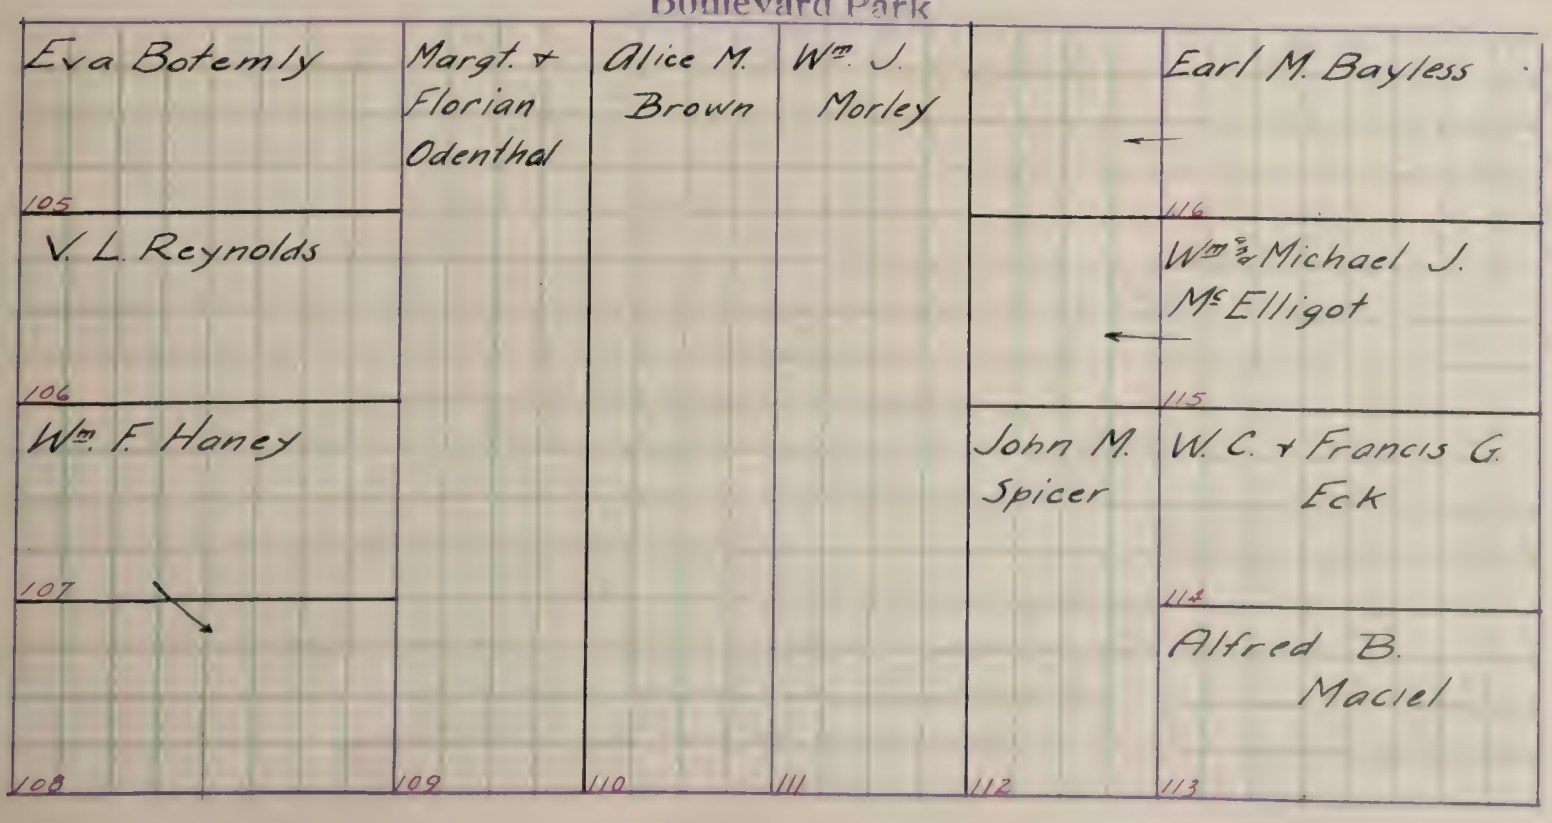 Boulevard Park
Eva Botemly
105
V. L. Reynolds
106
Wm. F. Haney
107
108
Margt. &
Florian
Odenthal
109
Alice M.
Brown
110
Wm. J.
Morley
111
John M.
Spicer
112
Earl M. Bayless
116
Wm & Michael J.
McElligot
115
W. C. & Francis G.
Eck
114
Alfred B.
Maciel
113